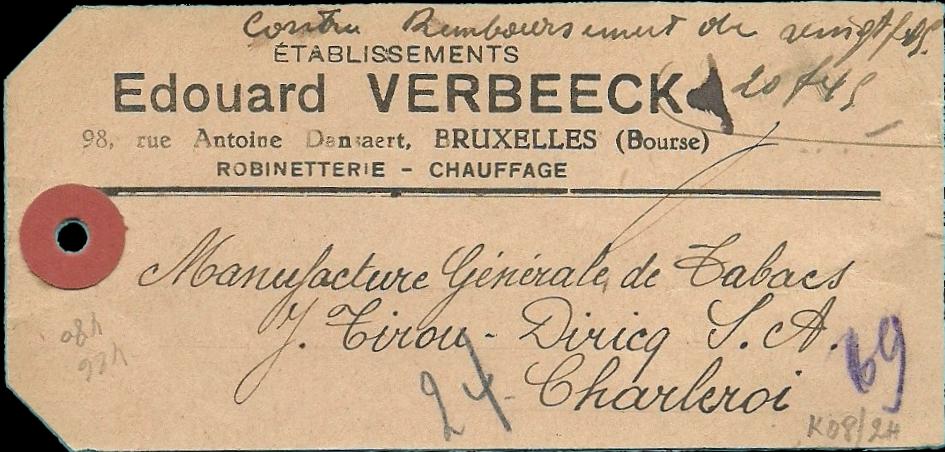 Contre Remboursement de vingt frs.
ÉTABLISSEMENTS
20 f 45
Edouard VERBEECK
98, rue Antoine Dansaert, BRUXELLES (Bourse)
ROBINETTERIE - CHAUFFAGE
Manufacture Générale de Tabacs
J. Tirou - Diricq S. A.
Charleroi
24
69
K08/2H